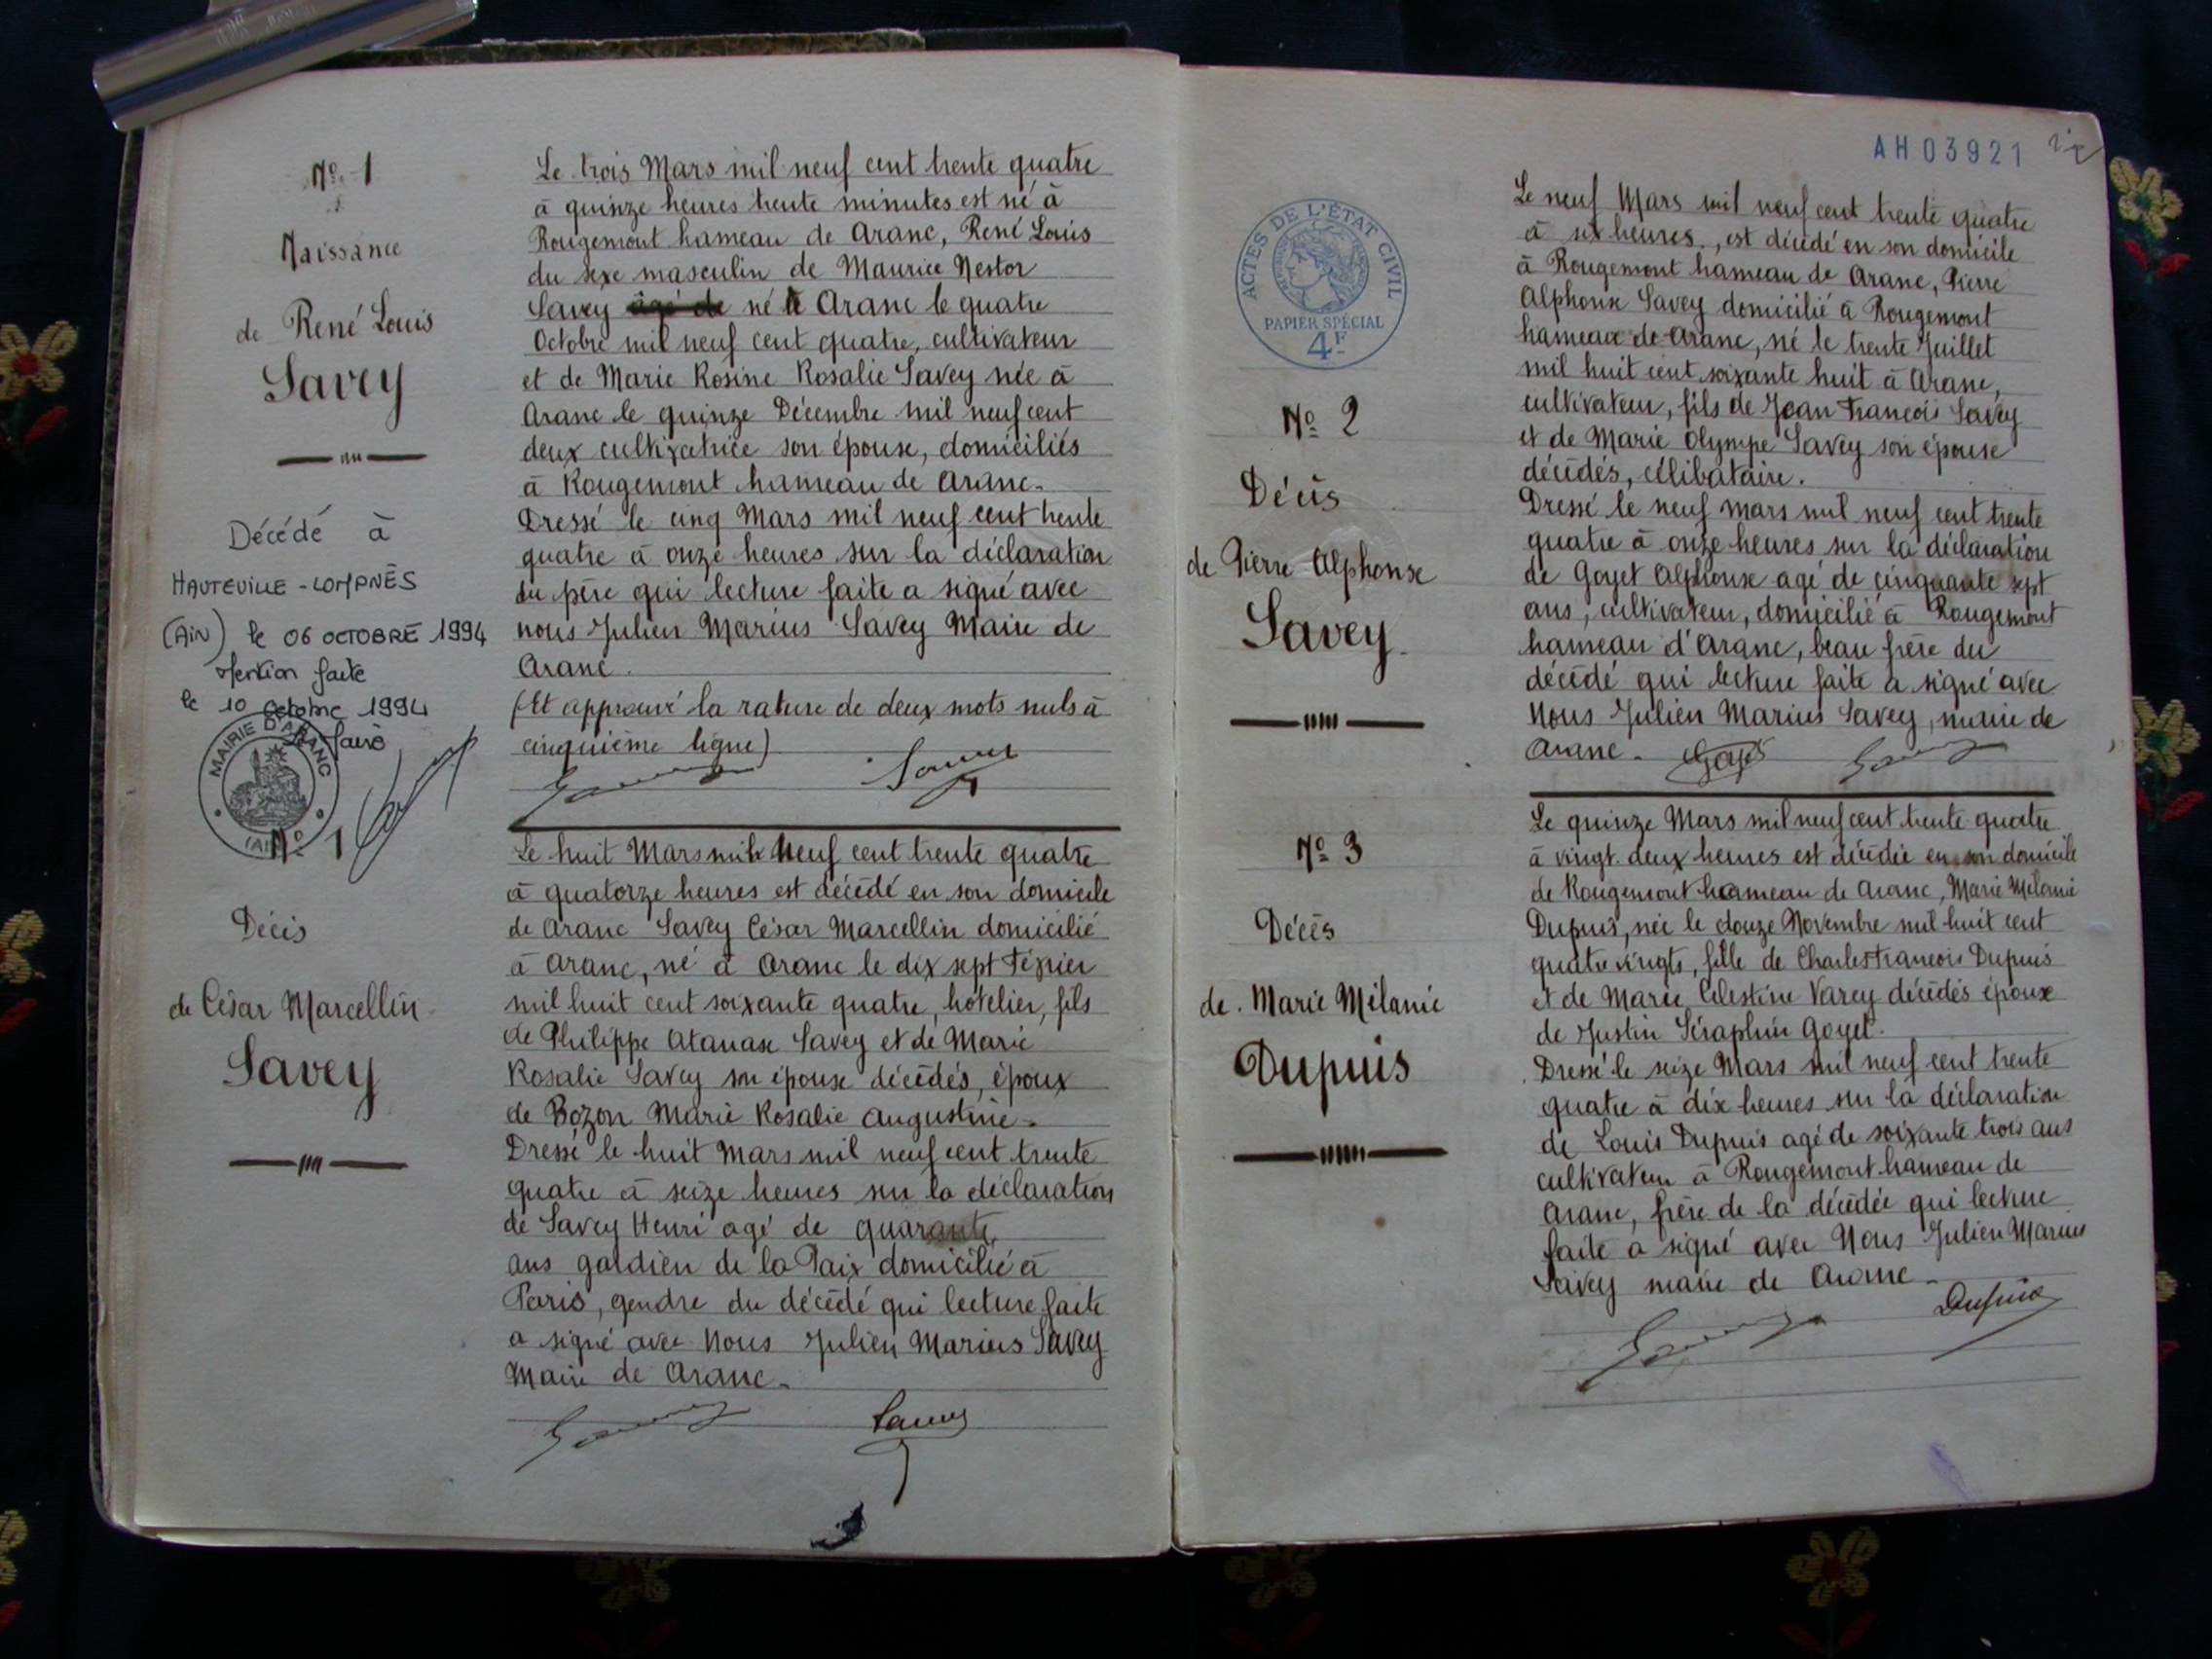 Nº 1
Naissance
de René Louis
Savey
Décédé à
HAUTEVILLE-LOMPNÈS
(AIN) le 06 OCTOBRE 1994
Mention faite
le 10 octobre 1994
MAIRIE D'ARANC
(AIN)
Le trois Mars mil neuf cent trente quatre
à quinze heures trente minutes est né à
Rougemont hameau de Aranc, René Louis
du sexe masculin de Maurice Nestor
Savey âgé de né à Aranc le quatre
Octobre mil neuf cent quatre, cultivateur
et de Marie Rosine Rosalie Savey née à
Aranc le quinze Décembre mil neuf cent
deux cultivatrice son épouse, domiciliés
à Rougemont hameau de Aranc.
Dressé le cinq Mars mil neuf cent trente
quatre à onze heures sur la déclaration
du père qui lecture faite a signé avec
nous Julien Marius Savey Maire de
Aranc.
(Et approuvé la rature de deux mots nuls à
cinquième ligne)
Nº 1
Décès
de César Marcellin
Savey
Le huit Mars mil neuf cent trente quatre
à quatorze heures est décédé en son domicile
de Aranc Savey César Marcellin domicilié
à Aranc, né à Aranc le dix sept Février
mil huit cent soixante quatre, hotelier, fils
de Philippe Atanase Savey et de Marie
Rosalie Savey son épouse décédés, époux
de Bozon Marie Rosalie Augustine.
Dressé le huit Mars mil neuf cent trente
quatre à seize heures sur la déclaration
de Savey Henri agé de quarante
ans gardien de la Paix domicilié à
Paris, gendre du décédé qui lecture faite
a signé avec Nous Julien Marius Savey
Maire de Aranc.
Savey
AH 03921
ACTES DE L'ÉTAT CIVIL
PAPIER SPÉCIAL
4F
Nº 2
Décès
de Pierre Alphonse
Savey
Le neuf Mars mil neuf cent trente quatre
à six heures, est décédé en son domicile
à Rougemont hameau de Aranc, Pierre
Alphonse Savey domicilié à Rougemont
hameau de Aranc, né le trente Juillet
mil huit cent soixante huit à Aranc,
cultivateur, fils de Jean François Savey
et de Marie Olympe Savey son épouse
décédés, célibataire.
Dressé le neuf mars mil neuf cent trente
quatre à onze heures sur la déclaration
de Goyet Alphonse agé de cinquante sept
ans, cultivateur, domicilié à Rougemont
hameau d'Aranc, beau frère du
décédé qui lecture faite a signé avec
Nous Julien Marius Savey, maire de
Aranc. Goyet
Nº 3
Décès
de Marie Mélanie
Dupuis
Le quinze Mars mil neuf cent trente quatre
à vingt deux heures est décédée en son domicile
de Rougemont hameau de Aranc, Marie Mélanie
Dupuis, née le douze Novembre mil huit cent
quatre vingts, fille de Charles François Dupuis
et de Marie Célestine Varey décédés épouse
de Justin Séraphin Goyet.
Dressé le seize Mars mil neuf cent trente
quatre à dix heures sur la déclaration
de Louis Dupuis agé de soixante trois ans
cultivateur à Rougemont hameau de
Aranc, frère de la décédée qui lecture
faite a signé avec Nous Julien Marius
Savey maire de Aranc.
Dupuis